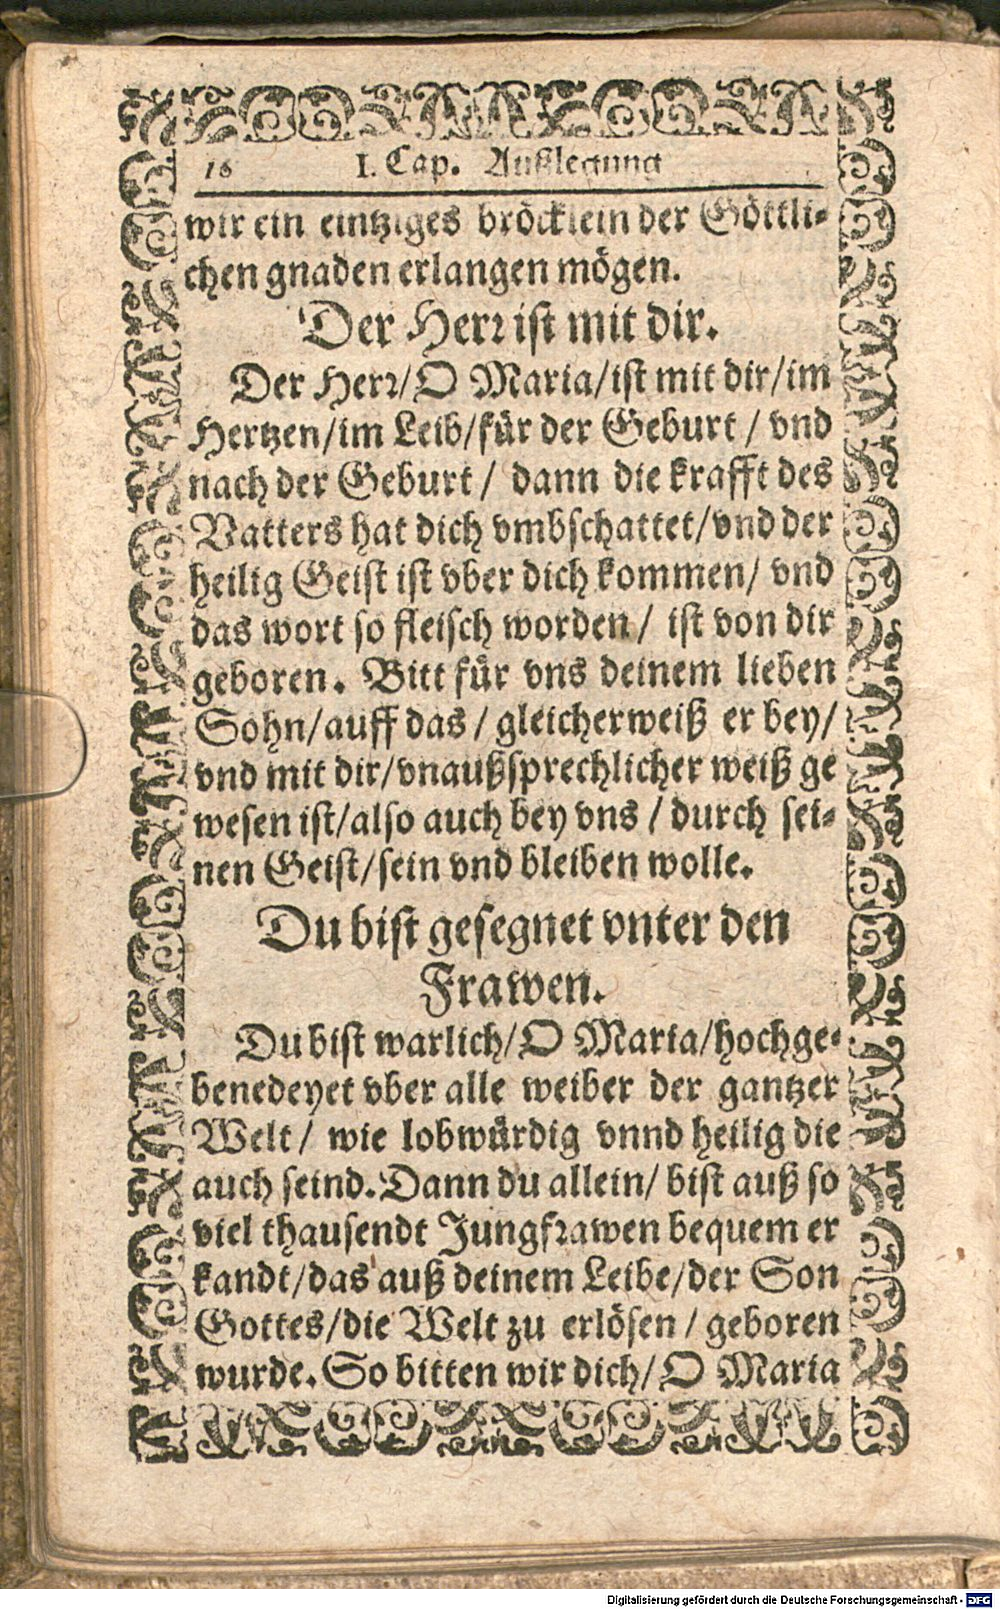 16 I. Cap. Außlegung
wir ein eintziges bröcklein der Göttli-
chen gnaden erlangen mögen.
Der Herr ist mit dir.
Der Herr/ O Maria/ ist mit dir/ im
Hertzen/ im Leib/ für der Geburt / vnd
nach der Geburt / dann die krafft des
Vatters hat dich vmbschattet/ vnd der
heilig Geist ist vber dich kommen/ vnd
das wort so fleisch worden / ist von dir
geboren. Bitt für vns deinem lieben
Sohn/ auff das / gleicherweiß er bey/
vnd mit dir/ vnaußsprechlicher weiß ge
wesen ist/ also auch bey vns / durch sei-
nen Geist/ sein vnd bleiben wolle.
Du bist gesegnet vnter den
Frawen.
Du bist warlich/ O Maria/ hochge-
benedeyet vber alle weiber der gantzer
Welt / wie lobwürdig vnnd heilig die
auch seind. Dann du allein/ bist auß so
viel thausendt Jungfrawen bequem er
kandt/ das auß deinem Leibe/ der Son
Gottes/ die Welt zu erlösen / geboren
wurde. So bitten wir dich/ O Maria
Digitalisierung gefördert durch die Deutsche Forschungsgemeinschaft - DFG